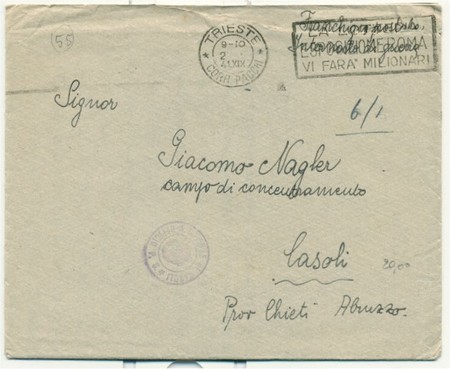 55
TRIESTE
9-10
2
41.XIX
CORR. PACCHI
Franchigia postale
LOTTERIA
ROMA
VI FARA' MILIONARI
Signor
6/1
Giacomo Nagler
campo di concentramento
Casoli
20,00
Prov Chieti Abruzzo.